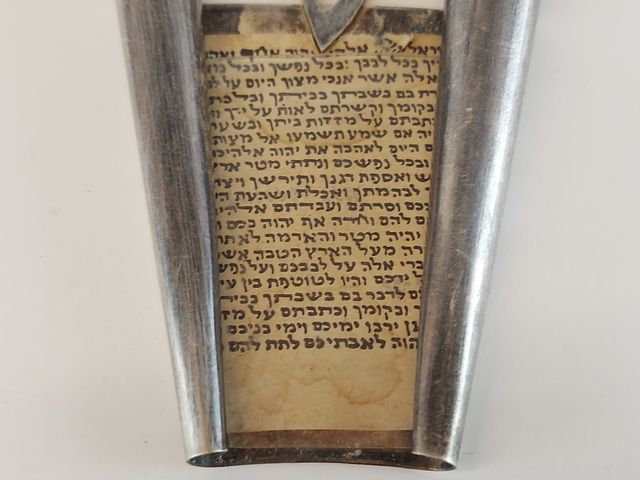 אלהינו יהוה אחד
בכל לבבך ובכל נפשך ובכל
אלה אשר אנכי מצוך היום על
בם בשבתך בביתך
ובקומך וקשרתם לאות על
על מזזות ביתך ובשער
אם שמע תשמעו אל מצות
היום לאהבה את יהוה אלהיכם
ובכל נפשכם ונתתי מטר
ואספת דגנך ותירשך
לבהמתך ואכלת ושבעת
וסרתם ועבדתם אלהים
להם וחרה אף יהוה בכם
יהיה מטר והאדמה לא
מעל הארץ הטבה אשר
אלה על לבבכם ועל
ידכם והיו לטוטפת בין
לדבר בם בשבתך
ובקומך וכתבתם על
ירבו ימיכם וימי בניכם
לאבתיכם לתת להם